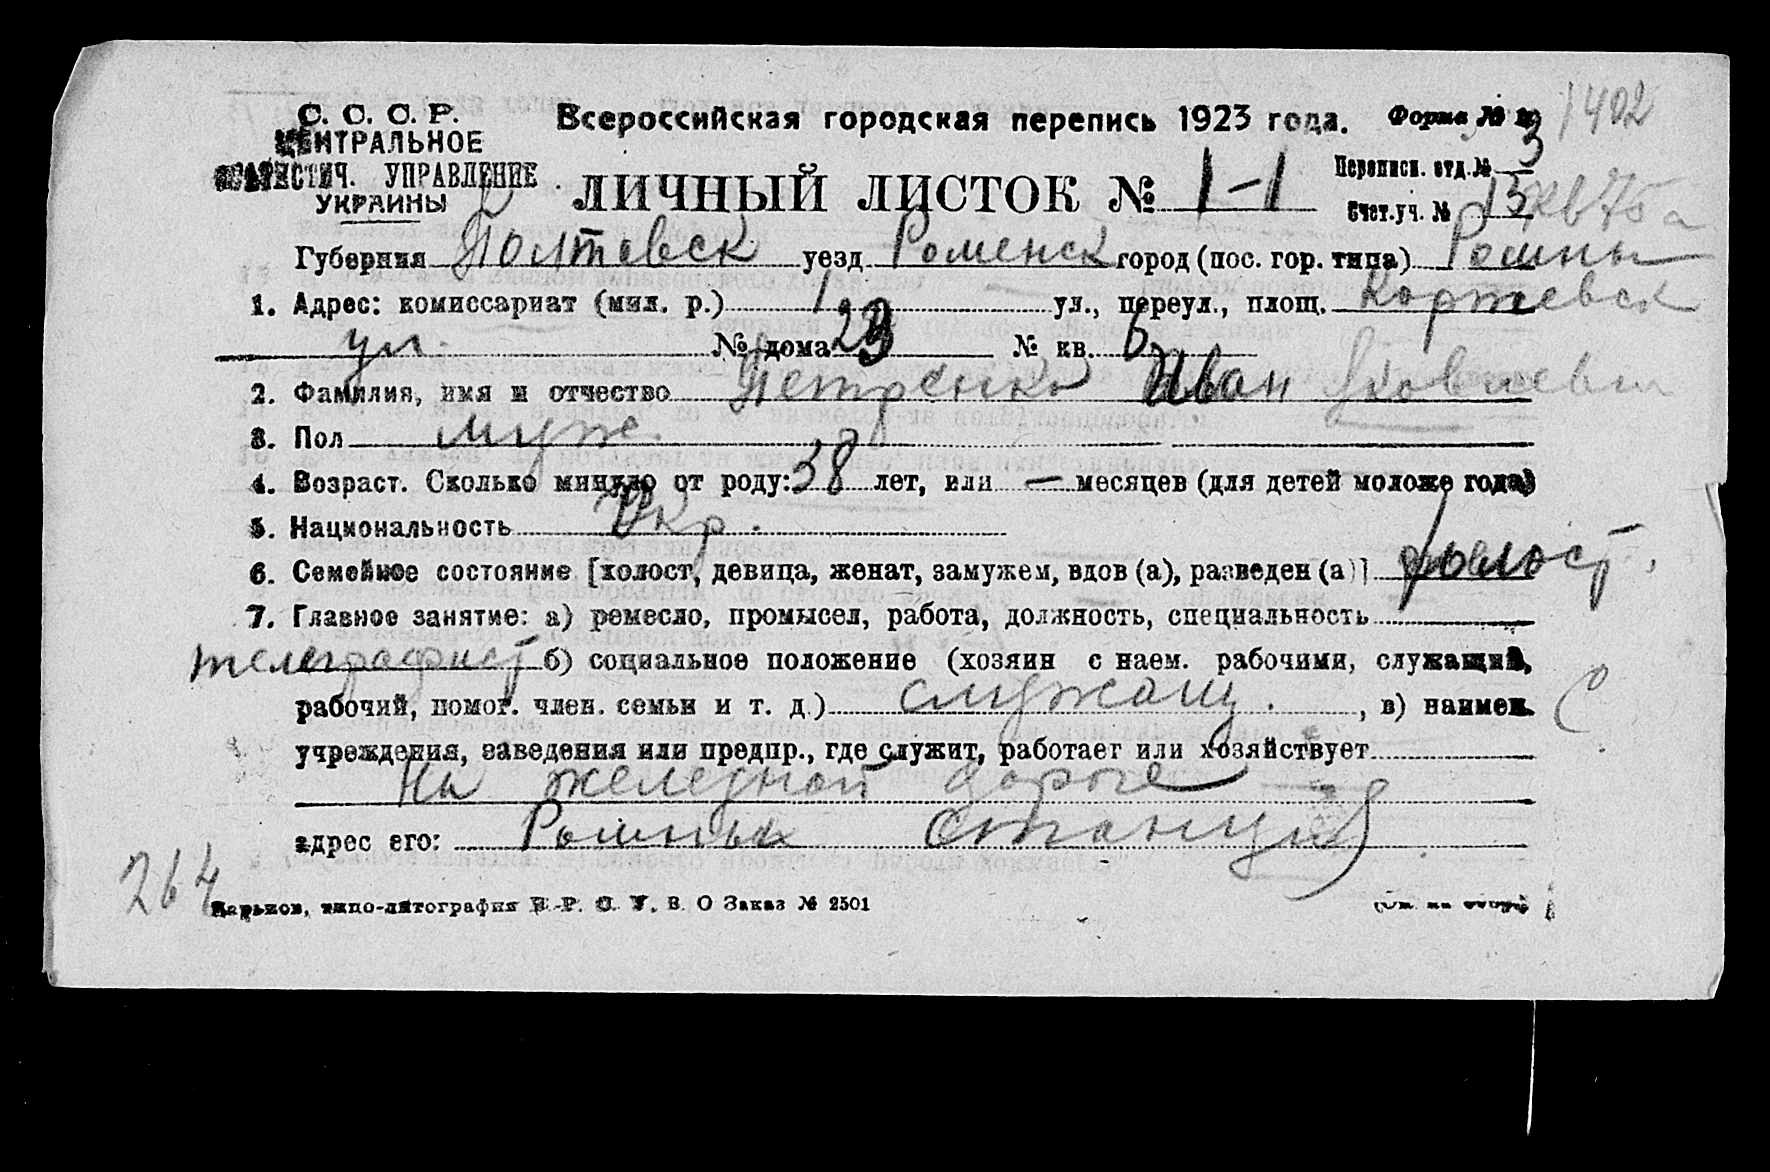 С. С. С. Р.
ЦЕНТРАЛЬНОЕ
СТАТИСТИЧ. УПРАВЛЕНИЕ
УКРАИНЫ
Всероссийская городская перепись 1923 года.
Форма №
1402
ЛИЧНЫЙ ЛИСТОК № 1-1
Переписн. отд. № 3
Счет. уч. № 13
Губерния Полтавск уезд Роменск город (пос. гор. типа) Ромны
1. Адрес: комиссариат (мил. р.) 1 ул., переул., площ.
ул. № дома 23 № кв. 6
2. Фамилия, имя и отчество Петренко Иван Яковлевич
3. Пол муж.
4. Возраст. Сколько минуло от роду: 38 лет, или — месяцев (для детей моложе года)
5. Национальность Укр.
6. Семейное состояние [холост, девица, женат, замужем, вдов (а), разведен (а)] холост.
7. Главное занятие: а) ремесло, промысел, работа, должность, специальность
телеграфист б) социальное положение (хозяин с наем. рабочими, служащий,
рабочий, помог. член. семьи и т. д.) служащ. , в) наимен. С
учреждения, заведения или предпр., где служит, работает или хозяйствует
На железной дороге
адрес его: Ромны Станция
264
Харьков, типо-литография В. О Заказ № 2501